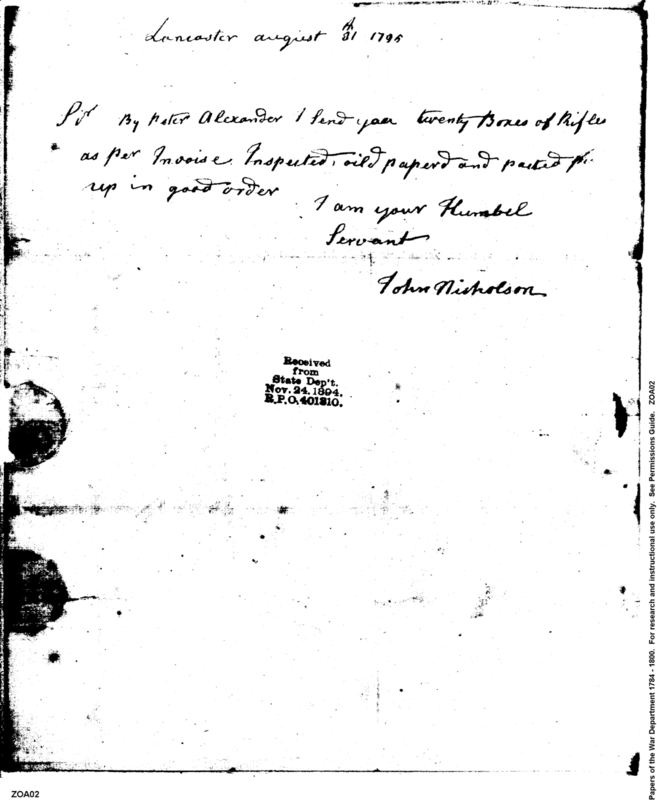 Lancaster august 31 1795
Sir By Peter Alexander I Send you twenty Boxes of Rifles
as Per Invoise. Inspected, oild paperd and packed
up in good order
I am your Humbel
Servant
John Nicholson
Received
from
State Dep't.
Nov. 24. 1894.
R.P.O. 401310.
Papers of the War Department 1784 - 1800. For research and instructional use only. See Permissions Guide. ZOA02
ZOA02